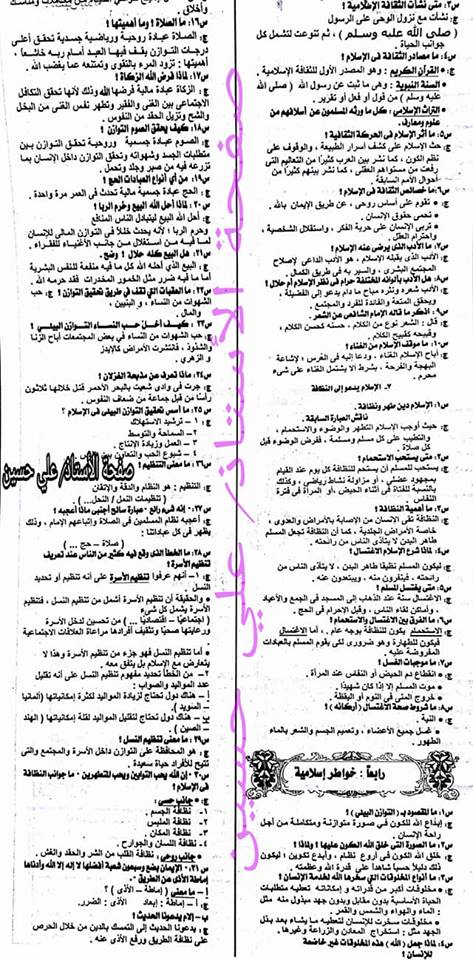 س٢: متى نشأت الثقافة الإسلامية ؟
ج: نشأت مع نزول الوحى على الرسول
( صلى الله عليه وسلم ) ، ثم تنوعت لتشمل كل
جوانب الحياة .
س٤: ما مصادر الثقافة فى الإسلام ؟
● القرآن الكريم : وهو المصدر الأول للثقافة الإسلامية .
● السنة النبوية : وهى ما ثبت عن رسول الله ( صلى الله
عليه وسلم ) من قول أو فعل أو تقرير .
● التراث الإسلامى : كل ما ورثه المسلمون عن أسلافهم من
علوم ومعارف .
س٥: ما أثر الإسلام فى الحركة الثقافية ؟
ج: حث الإسلام على كشف أسرار الطبيعة ، والوقوف على
نظم الكون ، كما نشر بين العرب كثيراً من التعاليم التى
رفعت من مستواهم العقلى ، كما نشر بينهم كثيراً من
أحوال الأمم السابقة .
س٦: ما خصائص الثقافة فى الإسلام ؟
ج: ● تقوم على أساس روحى ، عن طريق الإيمان بالله .
● تحمى حقوق الإنسان .
● تربى الإنسان على حرية الفكر ، واستقلال الشخصية ،
واحترام العقل .
س٧: ما الأدب الذى يرضى عنه الإسلام ؟
ج: الأدب الذى يقبله الإسلام ، هو الأدب الداعى لإصلاح
المجتمع البشرى ، والسير به فى طريق الكمال .
س٨: هل الأدب بألوانه المختلفة حرام فى نظر الإسلام أم حلال ؟
ج: الأدب شعر ونثر مباح ما دام يدعو إلى الفضيلة ،
ويحقق المتعة والفائدة للفرد والمجتمع .
س٩: اذكر ما قاله الإمام الشافعى عن الشعر .
ج: قال : الشعر نوع من الكلام ، حسنه كحسن الكلام ،
وقبيحه كقبيح الكلام .
س١٠: ما موقف الإسلام من الغناء ؟
ج: أباح الإسلام الغناء ، ودعا إليه فى الفرس ؛ لإشاعة
البهجة والفرحة ، بشرط ألا يشتمل الغناء على شىء
محرم .
٢. الإسلام يدعو إلى النظافة
س١: الإسلام دين طهر ونظافة .
ناقش العبارة السابقة .
ج: حيث أوجب الإسلام التطهر والوضوء والاستحمام ،
والتطيب على كل مسلم ومسلمة ، ففرض الوضوء قبل
كل صلاة .
س٢: متى يستحب الاستحمام ؟
ج: يستحب للمسلم أن يستحم للنظافة كل يوم عند القيام
بمجهود عضلى ، أو مزاولة نشاط رياضى ، وكذلك
بالنسبة للفتاة فى أثناء الحيض ، أو المرأة فى فترة
النفاس .
س٣: ما أهمية النظافة ؟
ج: النظافة تقى الإنسان من الإصابة بالأمراض والعدوى ،
وبخاصة الأمراض الجلدية ، كما أن النظافة تجعل المسلم
طاهر البدن لا يتأذى الناس من رائحته .
س٤: لماذا شرع الإسلام الاغتسال ؟
ج: ليكون المسلم نظيفا طاهر البدن ، لا يتأذى الناس من
رائحته ، فينفرون منه ، ويبتعدون عنه .
س٥: متى يغتسل المسلم ؟
ج: الاغتسال سنة عند الذهاب إلى المسجد فى الجمع والأعياد
، وأماكن لقاء الناس ، وقبل الإحرام فى الحج .
س٦: ما الفرق بين الاغتسال والاستحمام ؟
ج: الاستحمام يكون للنظافة بوجه عام ، أما الاغتسال
فيكون للطهارة وهو ضرورى لكى يقوم المسلم بالعبادات
المفروضة عليه .
س٧: ما موجبات الغسل ؟
ج: ● انقطاع دم الحيض أو النفاس عند المرأة .
● موت المسلم إلا إذا كان شهيداً .
● خروج المنى فى النوم أو اليقظة .
س٨: ما شروط صحة الاغتسال ( أركانه ) ؟
ج: ● النية
● غسل جميع الأعضاء ، وتعميم الجسم والشعر بالماء
الطهور .
رابعاً : خواطر إسلامية
س١: ما المقصود بـ ( التوازن البيئى ) ؟
ج: إبداع الله للكون فى صورة متوازنة ومتكاملة من أجل
راحة الإنسان .
س٢: ما الصورة التى خلق الله الكون عليها ؟ ولماذا ؟
ج: خلق الله الكون فى أروع نظام ، وأبدع تكوين ؛ ليكون
ذلك دليلاً حسياً شاهداً على قدرة الله وعظمته
س٣: ما أنواع المخلوقات التى سخرها الله لخدمة الإنسان ؟
ج: ● مخلوقات أكبر من قدراته و إمكاناته تعطيه متطلبات
الحياة الأساسية بدون مقابل وبدون جهد مبذول منه مثل
: الماء والهواء والشمس والقمر .
● مخلوقات سخرت للإنسان لتعطيه ما يشاء بعد بذل
الجهد مثل : استخراج المعادن والزراعة وغيرها .
س٤: لماذا جعل ( الله ) هذه المخلوقات غير خاضعة
للإنسان ؟
وأخلاق .
س١٦: ما الصلاة ؟ وما أهميتها ؟
ج: الصلاة عبادة روحية ورياضية جسدية تحقق أعلى
درجات التوازن يقف فيها العبد أمام ربه خاشعاً .
أهميتها : تزود المرء بالتقوى وتمنعه عما يغضب الله .
س١٧: لماذا فرض الله الزكاة ؟
ج: الزكاة عبادة مالية فرضها الله وذلك لأنها تحقق التكافل
الاجتماعى بين الغنى والفقير وتطهر نفس الغنى من البخل
والشح وتزيل الحقد من النفوس .
س١٨: كيف يحقق الصوم التوازن ؟
ج: الصوم عبادة جسمية وروحية تحقق التوازن بين
متطلبات الجسد وشهواته وتحقق التوازن داخل الإنسان بما
تزرعه فيه من صبر وجلد وتحمل .
س١٩: من أى أنواع العبادات الحج ؟
ج: الحج عبادة جسمية مالية تحدث فى العمر مرة واحدة .
س٢٠: لماذا أحل الله البيع وحرم الربا ؟
ج: أحل الله البيع ليتبادل الناس المنافع
وحرم الربا ؛ لأنه يحدث خللاً فى التوازن المالى للإنسان
لما فيه من استغلال من جانب الأغنياء للفقراء .
س٢١: هل البيع كله حلال ؟ وضح .
ج: البيع الذى أحله الله كل ما فيه منفعة للنفس البشرية
أما ما فيه ضرر مثل الخمور المخدرات فقد حرمه الله .
س٢٢: ما العقبات التى تقف فى طريق تحقيق التوازن ؟ ج: حب
الشهوات من النساء ، و البنين ،
والمال .
س٢٣: كيف أخل حب النساء التوازن البيئى ؟
ج: حب الشهوات من النساء فى بعض المجتمعات أباح الزنا
والشذوذ ، فانتشرت الأمراض كالإيدز
و الزهرى .
س٢٤: ماذا تعرف عن مذبحة الغزلان ؟
ج: جرت فى وادى شعيب بالبحر الأحمر قتل خلالها ثلاثون
رأساً من قبل جماعة من ضعاف النفوس .
س٢٥: ما أسس تحقيق التوازن البيئى فى الإسلام ؟
ج: ١ – ترشيد الاستهلاك .
٢ – السماحة والتوسط
٣ – العمل وزيادة الإنتاج .
٤ – شيوع الحب والتعاون
س٢٦: ما معنى التنظيم ؟
ج: التنظيم : هو النظام والدقة والإتقان
( تنظيمات النمل / النحل ... )
س٢٧: فى شىء رائع - عبارة سائح أجنبى ماذا أعجبه ؟
ج: أعجبه نظام المسلمين فى الصلاة وإتباعهم الإمام ، وذلك
يظهر فى كل عباداتنا :
( صلاة – حج ... )
س٢٨: ما الخطأ الذى وقع فيه كثير من الناس عند تعريف
تنظيم الأسرة ؟
ج: ١- أنهم عرفوا تنظيم الأسرة على أنه تنظيم أو تحديد
النسل .
● والحقيقة أن تنظيم الأسرة أشمل من تنظيم النسل ، فتنظيم
الأسرة يشمل كل شىء
( اجتماعياً – اقتصادياً ... ) من تحسين لدخل الأسرة
ورعايتها صحياً وتثقيف أفرادها مراعاة العلاقات الاجتماعية
.
● أما تنظيم النسل فهو جزء من تنظيم الأسرة وهذا لا
يتعارض مع الإسلام بل يتفق معه .
٢- من الخطأ تحديد مفهوم تنظيم النسل على أنه تقليل
عدد المواليد والصواب :
أ – هناك دول تحتاج لزيادة المواليد لكثرة إمكانياتها (ألمانيا
– السويد ) .
ب – هناك دول تحتاج لتقليل المواليد لقلة إمكانياتها ( الهند
– الصين ) .
س٢٩: ما معنى تنظيم النسل ؟
ج: هو المحافظة على التوازن داخل الأسرة والمجتمع والتى
تتيح للأفراد حياة سعيدة .
س٣٠: إن الله يحب التوابين ويحب المتطهرين - ما جوانب النظافة
فى الإسلام ؟
ج: ● جانب حسى :
١. نظافة الجسم .
٢. نظافة الملبس
٣. نظافة المكان .
٤. نظافة اللسان والجوارح .
● جانب روحى : نظافة القلب من الشر والحقد والغش .
س٣١: الإيمان بضع وسبعون شعبة أفضلها لا إله إلا الله وأدناها
إماطة الأذى عن الطريق .
أ – ما معنى ( إماطة – الأذى ) ؟
ج: إماطة : إبعاد الأذى : الضرر .
ب – إلام يدعونا الحديث ؟
ج: يدعونا الحديث إلى التمسك بالدين من خلال الحرص
على نظافة الطريق ورفع الأذى عنه .
صفحة الأستاذ/ علي حسين
صفحة الأستاذ/ علي حسين